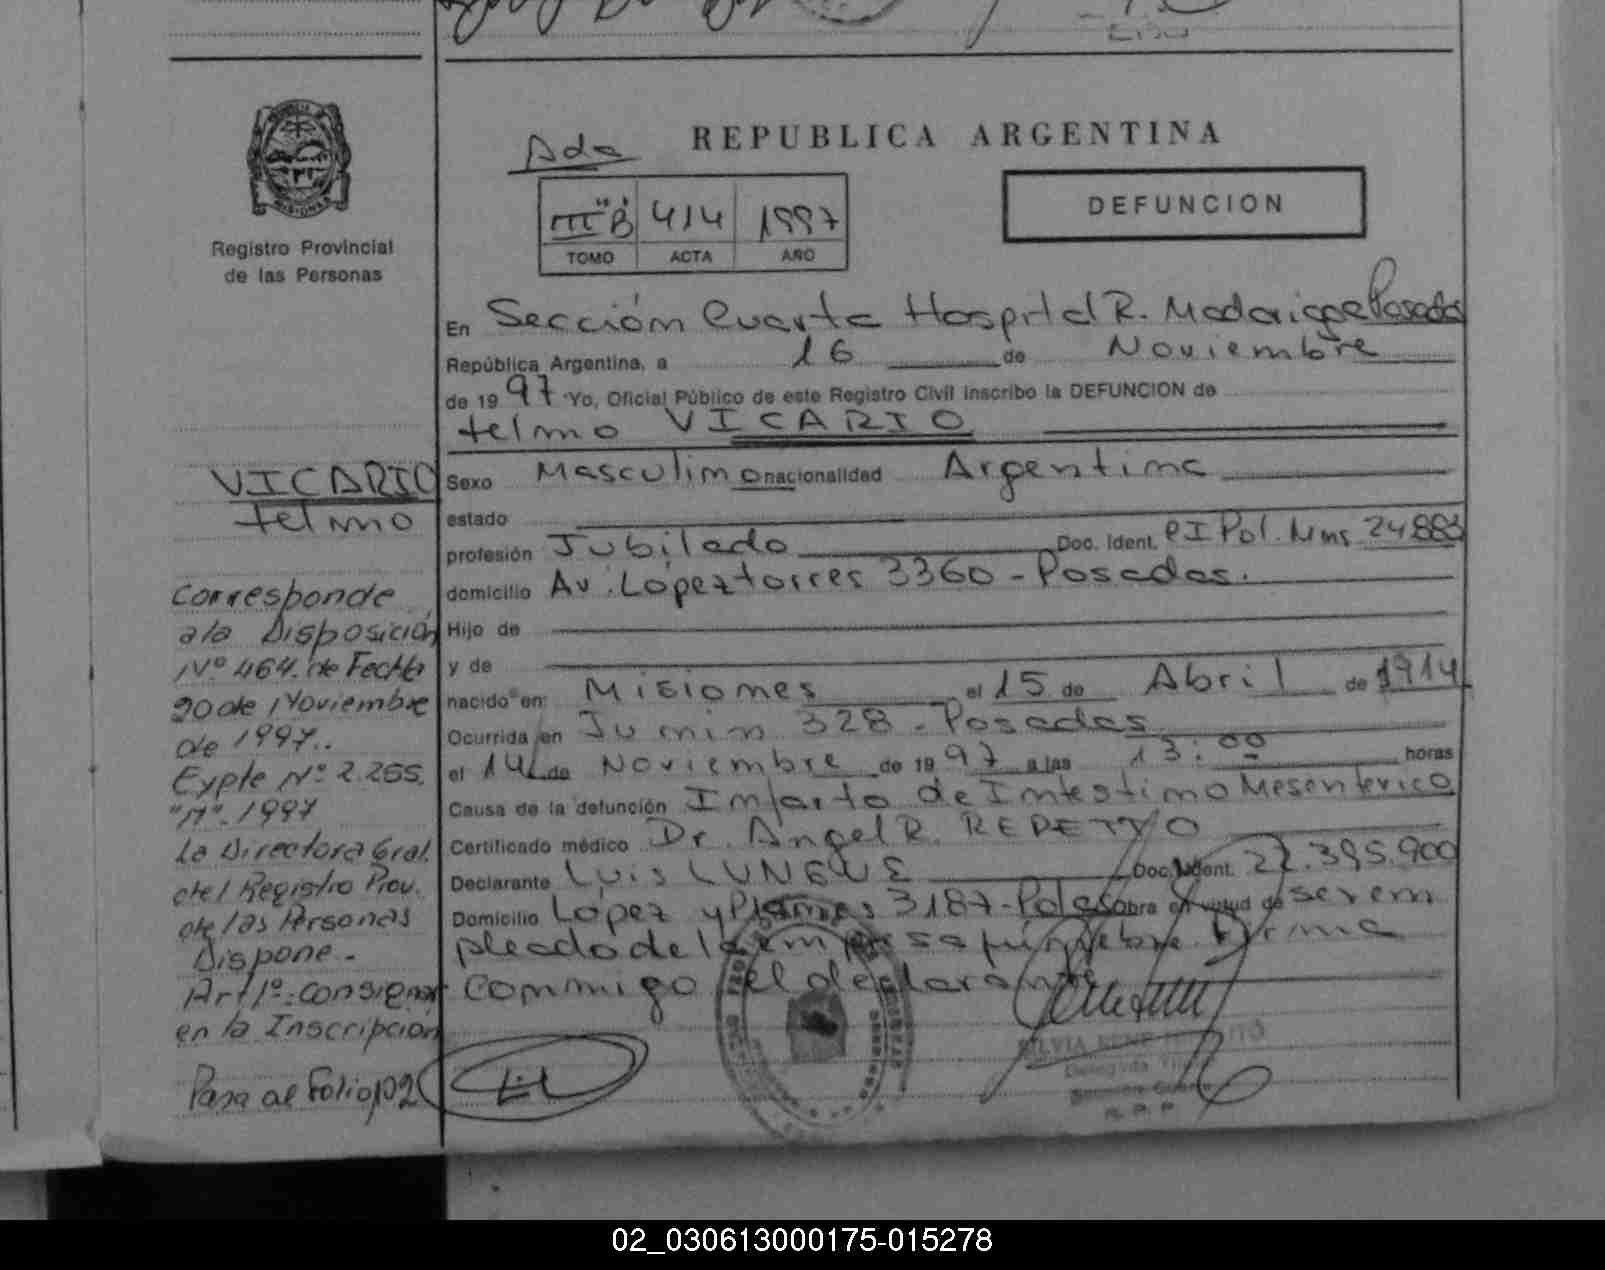 Registro Provincial
de las Personas
VICARIO
telmo
Corresponde
a la Disposición
Nº 464. de Fecha
20 de Noviembre
de 1997..
Expte Nº 2.255.
"M". 1997
La Directora Gral.
del Registro Prov.
de las Personas
Dispone.-
Art 1º: consignar
en la Inscripción
Pasa al Folio
REPUBLICA ARGENTINA
III "B" 414 1997
TOMO ACTA AÑO
DEFUNCION
En Sección Cuarta Hospital R. Madariaga Posadas
República Argentina, a 16 de Noviembre
de 1997 Yo, Oficial Público de este Registro Civil inscribo la DEFUNCION de
telmo VICARIO
Sexo Masculino nacionalidad Argentina
estado
profesión Jubilado Doc. Ident. CI Pol. Mns 24883
domicilio Av. López torres 3360 - Posadas.
Hijo de
y de
nacido en: Misiones el 15 de Abril de 1914
Ocurrida en Junin 328 - Posadas
el 14 de Noviembre de 1997 a las 13:00 horas
Causa de la defunción Infarto de Intestino Mesenterico
Certificado médico Dr. Angel R. REPETTO
Declarante Luis Doc. Ident. 22.395.900
Domicilio López y Planes 3187 - Pdas obra en virtud de ser em
pleado de la empresa fúnebre. Firma
conmigo el declarante
02_030613000175-015278